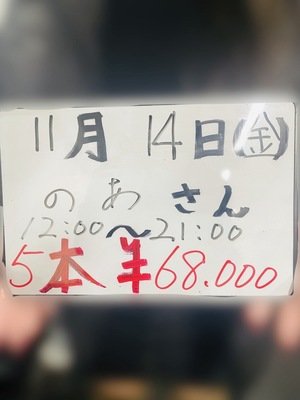 11月 14日(金)
のあ さん
12:00～21:00
5本 ¥68.000